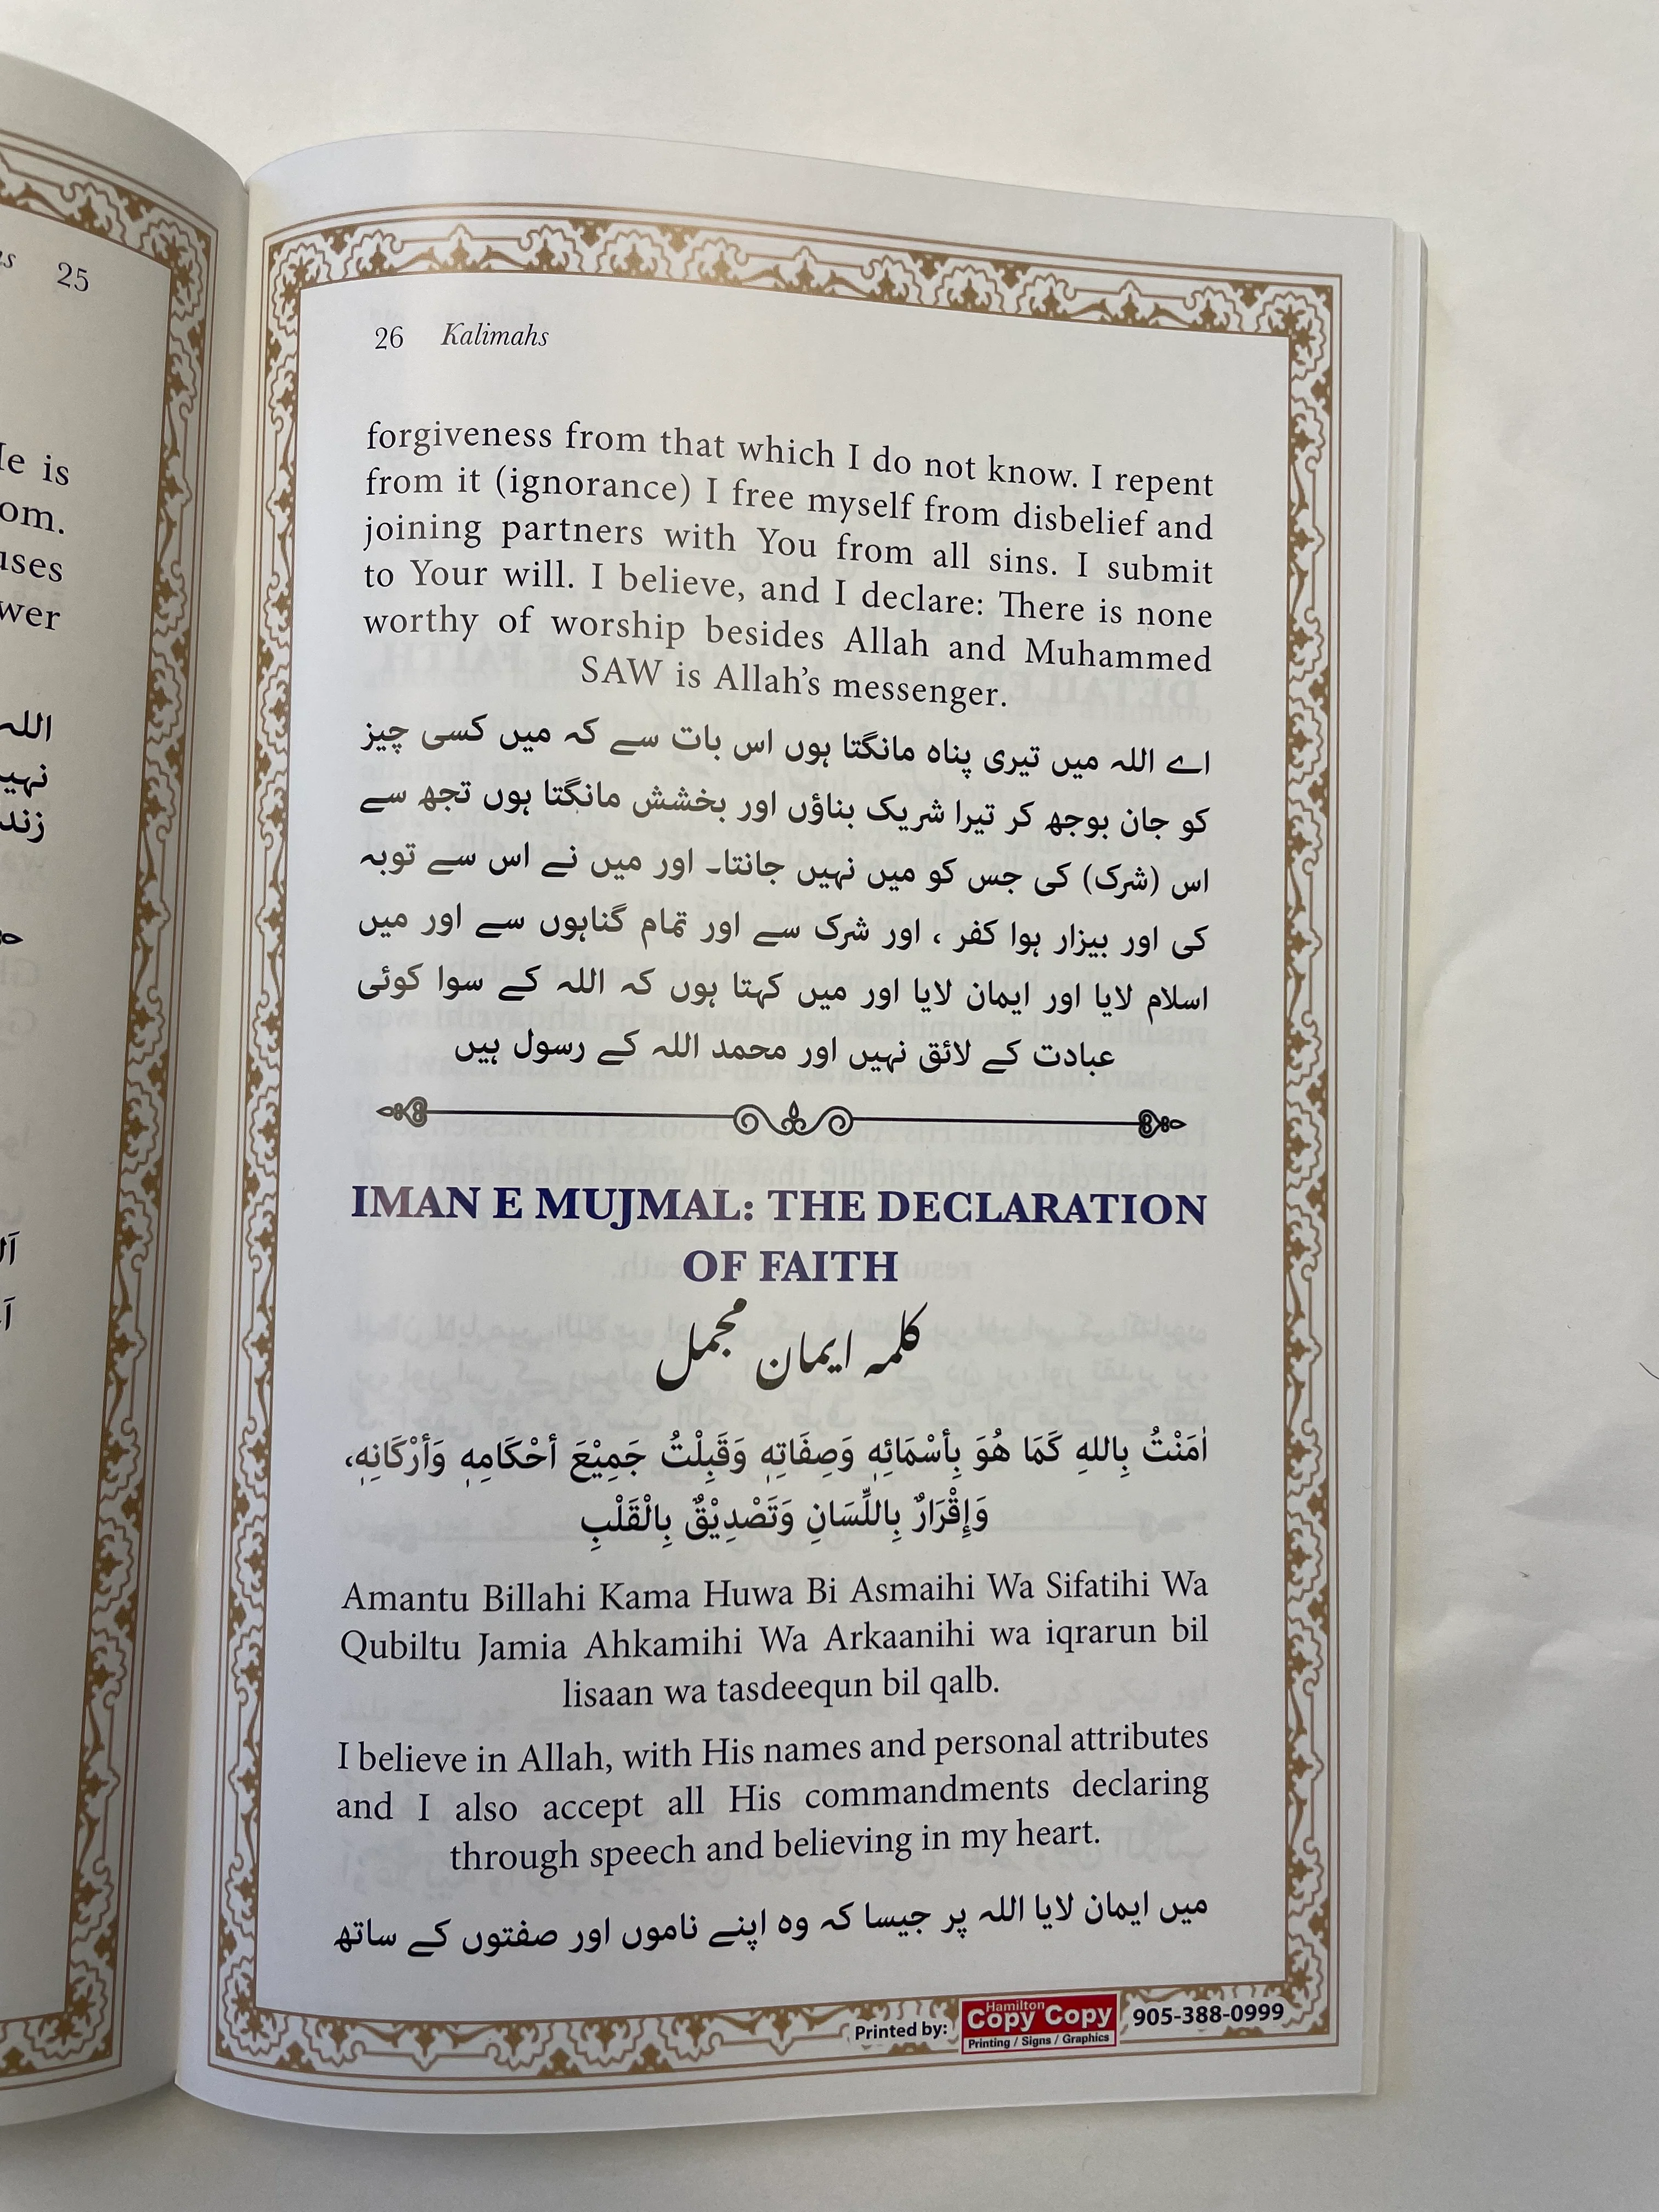 s 25
He is
om.
uses
wer
اللہ
نہیں
زند
26 Kalimahs
forgiveness from that which I do not know. I repent
from it (ignorance) I free myself from disbelief and
joining partners with You from all sins. I submit
to Your will. I believe, and I declare: There is none
worthy of worship besides Allah and Muhammed
SAW is Allah’s messenger.
اے اللہ میں تیری پناہ مانگتا ہوں اس بات سے کہ میں کسی چیز
کو جان بوجھ کر تیرا شریک بناؤں اور بخشش مانگتا ہوں تجھ سے
اس (شرک) کی جس کو میں نہیں جانتا۔ اور میں نے اس سے توبہ
کی اور بیزار ہوا کفر ، اور شرک سے اور تمام گناہوں سے اور میں
اسلام لایا اور ایمان لایا اور میں کہتا ہوں کہ اللہ کے سوا کوئی
عبادت کے لائق نہیں اور محمد اللہ کے رسول ہیں
IMAN E MUJMAL: THE DECLARATION
OF FAITH
کلمہ ایمان مجمل
اٰمَنْتُ بِاللهِ كَمَا هُوَ بِأسْمَائِهٖ وَصِفَاتِهٖ وَقَبِلْتُ جَمِيْعَ أحْكَامِهٖ وَأرْكَانِهٖ،
وَإِقْرَارٌ بِاللِّسَانِ وَتَصْدِيْقٌ بِالْقَلْبِ
Amantu Billahi Kama Huwa Bi Asmaihi Wa Sifatihi Wa
Qubiltu Jamia Ahkamihi Wa Arkaanihi wa iqrarun bil
lisaan wa tasdeequn bil qalb.
I believe in Allah, with His names and personal attributes
and I also accept all His commandments declaring
through speech and believing in my heart.
میں ایمان لایا اللہ پر جیسا کہ وہ اپنے ناموں اور صفتوں کے ساتھ
Printed by: Hamilton Copy Copy Printing / Signs / Graphics 905-388-0999